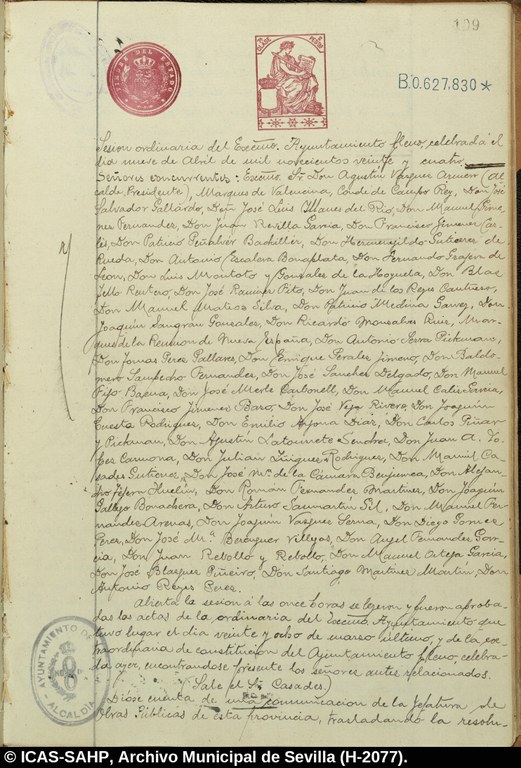 199
B.0.627.830 *
TIMBRE DEL ESTADO
8ª CLASE
Sesion ordinaria del Excmo. Ayuntamiento pleno, celebrada el
dia nueve de Abril de mil novecientos veinte y cuatro,
Señores concurrentes: Excmo Sr. Don Agustin Vazquez Armero (Al
calde, Presidente), Marques de Valencina, Conde de Campo Rey, Don José
Salvador Gallardo, Don José Luis Illanes del Rio, Don Manuel Gime
nez Fernandez, Don Juan Revilla Garcia, Don Francisco Jimenez
Don Patricio Peñalver Bachiller, Don Hermenegildo Gutierrez de
Rueda, Don Antonio Escalera Bonaplata, Don Fernando Grajera de
Leon, Don Luis Montoto y Gonzalez de la Hoyuela, Don Blas
Tello Rentero, Don José Ramirez Don Juan de los Reyes
Don Manuel Mateos Silva, Don Patricio Medina Garvey, Don
Joaquin Sangran Gonzalez, Don Ricardo Monsalvez Ruiz, Mar
ques de la Reunion de Nueva España, Don Antonio Serra Pickman,
Don Tomas Perez Pallares, Don Enrique Perales Jimeno, Don Baldo
mero Sampedro Fernandez, Don José Sanchez Delgado, Don Manuel
Fijo Baena, Don José Merle Carbonell, Don Manuel Garcia,
Don Francisco Jimenez Bazo, Don José Vega Rivero, Don Joaquin
Cuesta Rodriguez, Don Emilio Arjona Diaz, Don Carlos Piñar
y Pickman, Don Agustin Don Juan A. Lo
pez Carmona, Don Julian Iñiguez Rodriguez, Don Manuel Ca
sades Gutierrez, Don José Mª de la Camara Benjumea, Don Alejan
dro Huelin, Don Roman Fernandez Martinez, Don Joaquin
Gallego Bonachera, Don Arturo Sanmartin Gil, Don Manuel Fer
nandez Arenas, Don Joaquin Vazquez Serna, Don Diego Gomez
Perez, Don José Mª. Beraguer Villegas, Don Angel Fernandez Gar
cia, Don Juan Rebollo y Rebollo, Don Manuel Ortega Garcia,
Don José Blazquez Piñeiro, Don Santiago Martinez Martin, Don
Antonio Reyes Perez.
Abierta la sesion á las once horas se leyeron y fueron aproba-
das las actas de la ordinaria del Excmo. Ayuntamiento que
tuvo lugar el dia veinte y ocho de marzo último, y de la ex
traordinaria de constitucion del Ayuntamiento pleno, celebra-
da ayer, encontrandose presente los señores antes relacionados.
(Sale el Sr. Casades)
Dióse cuenta de una comunicacion de la Jefatura de
Obras Públicas de esta provincia, trasladando la resolu-
AYUNTAMIENTO DE
ALCALDIA
© ICAS-SAHP, Archivo Municipal de Sevilla (H-2077).